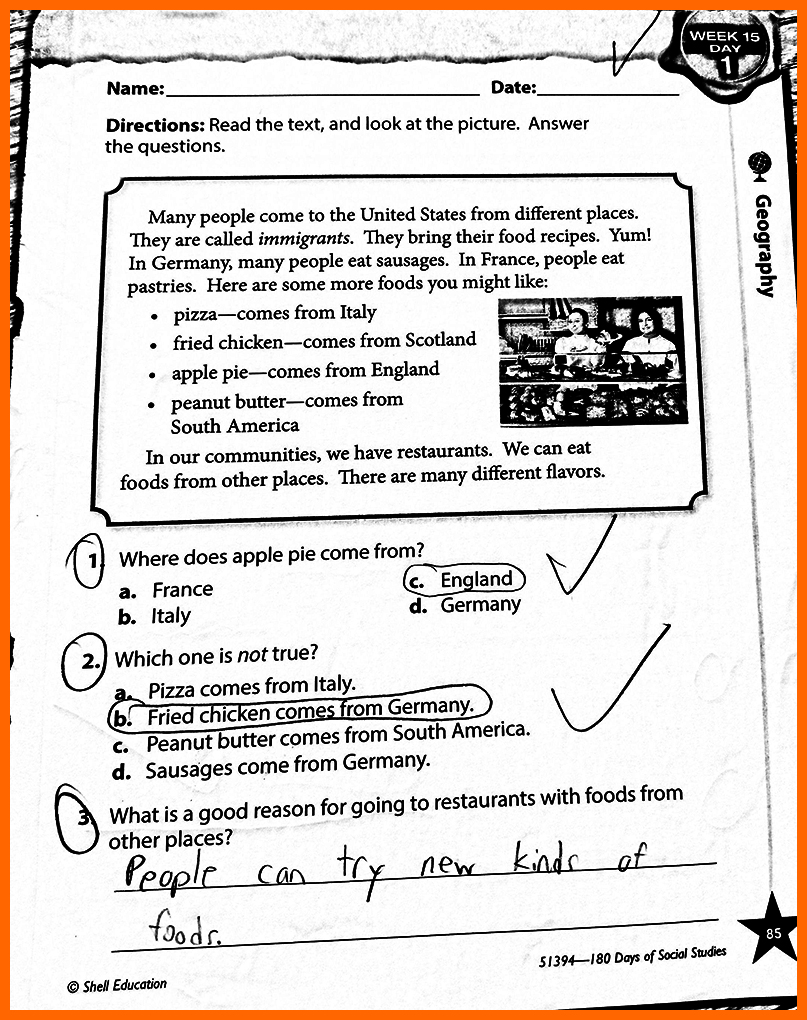 WEEK 15
DAY
1
Name: Date:
Directions: Read the text, and look at the picture. Answer
the questions.
Geography
Many people come to the United States from different places.
They are called immigrants. They bring their food recipes. Yum!
In Germany, many people eat sausages. In France, people eat
pastries. Here are some more foods you might like:
• pizza—comes from Italy
• fried chicken—comes from Scotland
• apple pie—comes from England
• peanut butter—comes from
South America
In our communities, we have restaurants. We can eat
foods from other places. There are many different flavors.
1. Where does apple pie come from?
a. France
b. Italy
c. England
d. Germany
2. Which one is not true?
a. Pizza comes from Italy.
b. Fried chicken comes from Germany.
c. Peanut butter comes from South America.
d. Sausages come from Germany.
3. What is a good reason for going to restaurants with foods from
other places?
People can try new kinds of
foods.
85
51394—180 Days of Social Studies
© Shell Education